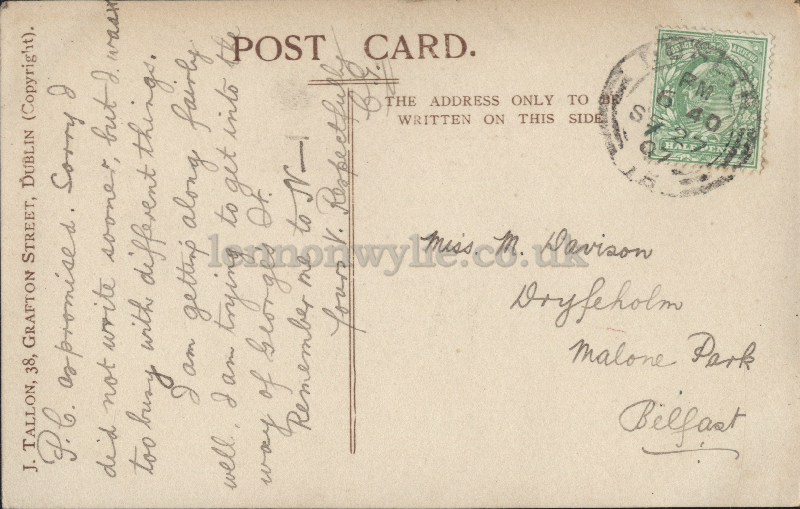 POST CARD.
THE ADDRESS ONLY TO BE
WRITTEN ON THIS SIDE
J. TALLON, 38, GRAFTON STREET, DUBLIN (Copyright).
P.C. as promised. Sorry I
did not write sooner, but I was
too busy with different things.
I am getting along fairly
well. I am trying to get into the
way of George's St.
Remember me to N—
Yours V. Respectfully
Miss. M. Davison
Dryfeholm
Malone Park
Belfast
HALFPENNY
PM
6 40
SP 22
07
lennonwylie.co.uk